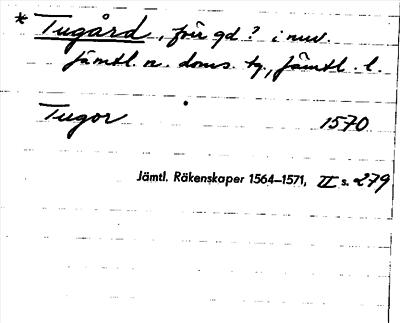 * Tugård, förr gd? i nuv.
Jämtl. n. doms. tg., Jämtl. l.
Tugor 1570
Jämtl. Räkenskaper 1564–1571, II s. 279